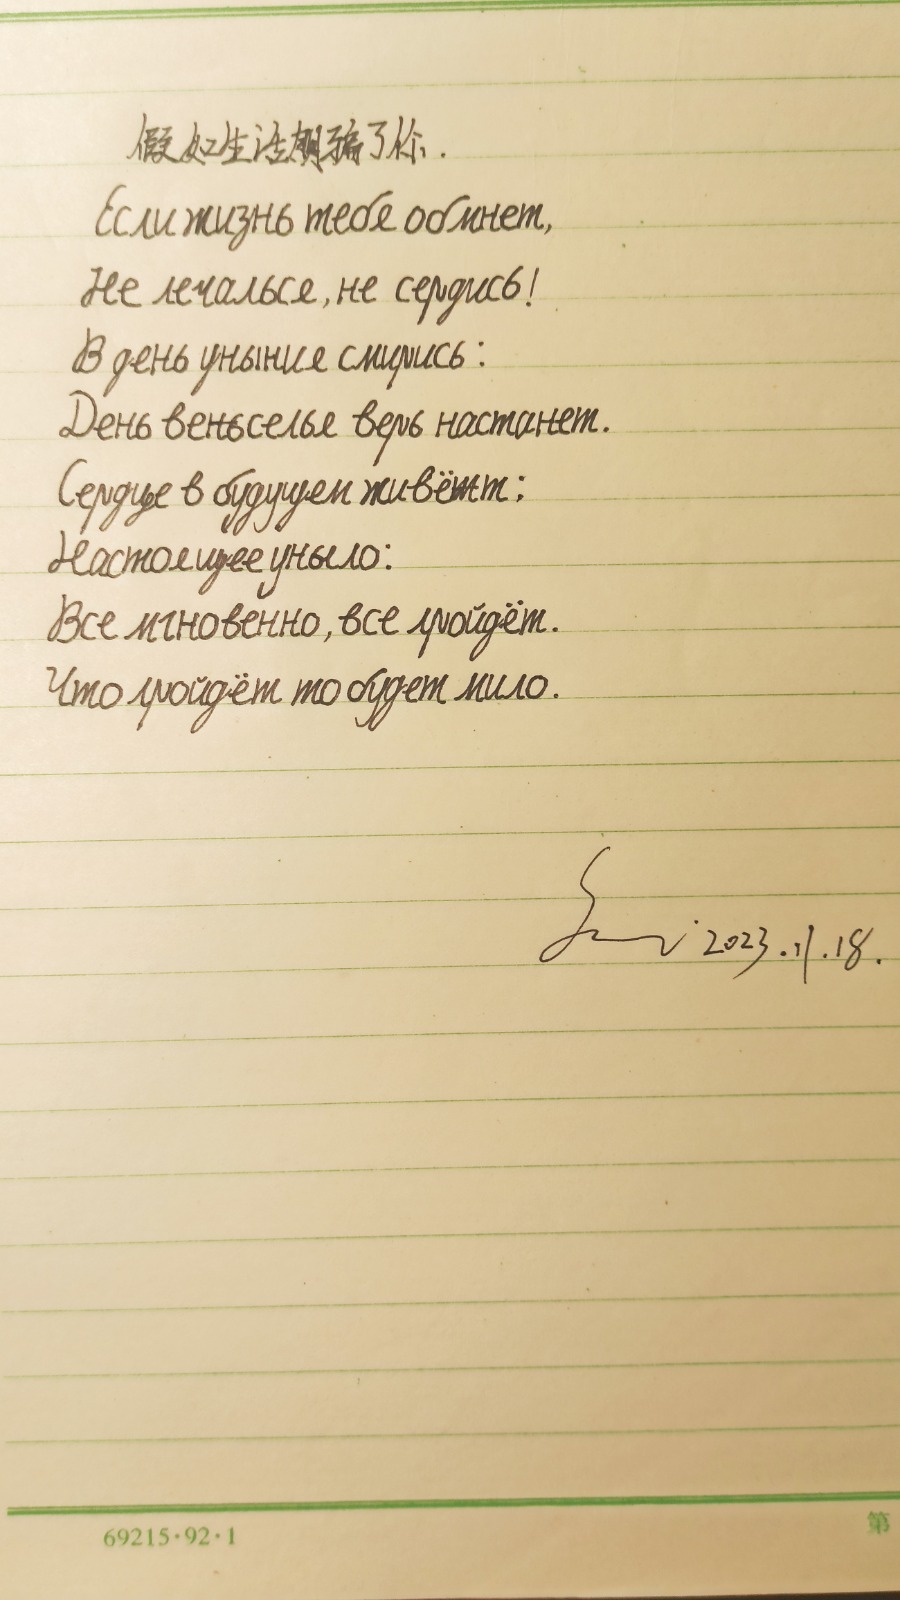 假如生活欺骗了你.
Если жизнь тебя обмнет,
Не печалься, не сердись!
В день уныния смирись:
День веньселья верь настанет.
Сердце в будущем живёт;
Настоящее уныло:
Все мгновенно, все пройдёт.
Что пройдёт то будет мило.
2023.11.18.
69215·92·1
第